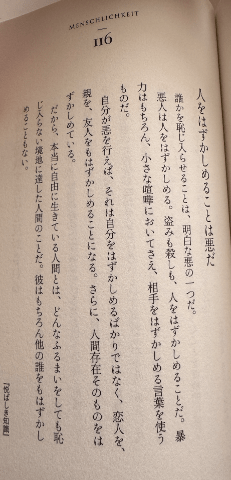 MENSCHLICHKEIT
116
人をはずかしめることは悪だ
誰かを恥じ入らせることは、明白な悪の一つだ。
悪人は人をはずかしめる。盗みも殺しも、人をはずかしめることだ。暴
力はもちろん、小さな喧嘩においてさえ、相手をはずかしめる言葉を使う
ものだ。
自分が悪を行えば、それは自分をはずかしめるばかりではなく、恋人を、
親を、友人をもはずかしめることになる。さらに、人間存在そのものをは
ずかしめている。
だから、本当に自由に生きている人間とは、どんなふるまいをしても恥
じ入らない境地に達した人間のことだ。彼はもちろん他の誰をもはずかし
めることもない。
『悦ばしき知識』